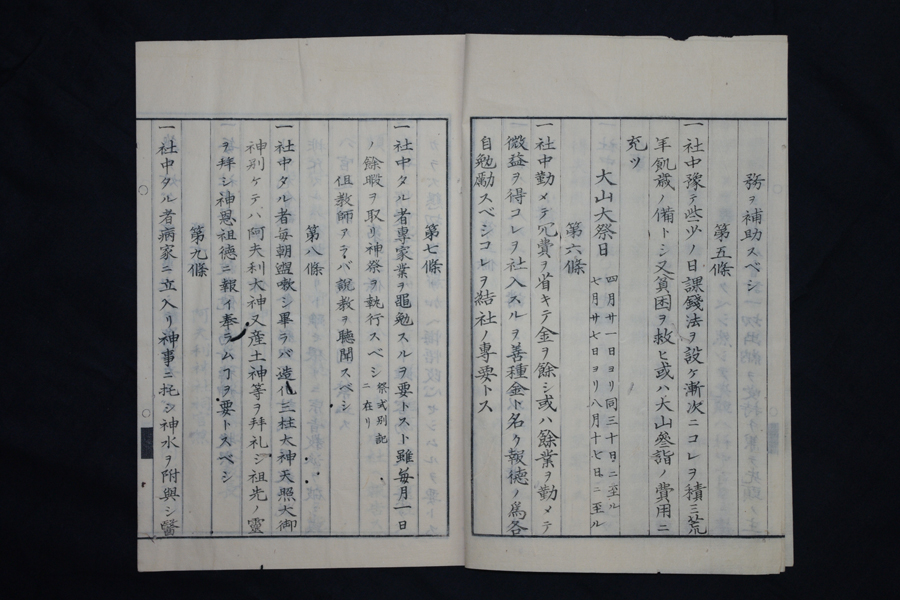 務ヲ補助スベシ
第五條
一社中豫テ些少ノ日課錢法ヲ設ケ漸次ニコレヲ積ミ荒
年飢歳ノ備トシ又貧困ヲ救ヒ或ハ大山參詣ノ費用ニ
充ツ
大山大祭日
四月廿一日ヨリ同三十日ニ至ル
七月廿七日ヨリ八月十七日ニ至ル
第六條
一社中勤メテ冗費ヲ省キテ金ヲ餘シ或ハ餘業ヲ勤メテ
微益ヲ得コレヲ社入スルヲ善種金ト名ク報德ノ爲各
自勉勵スベシコレヲ結社ノ專要トス
第七條
一社中タル者專家業ヲ黽勉スルヲ要トスト雖毎月一日
ノ餘暇ヲ取リ神祭ヲ執行スベシ
祭式別記
ニ在リ
但教師アラバ說教ヲ聽聞スベシ
第八條
一社中タル者毎朝盥嗽シ畢ラバ造化三柱大神天照大御
神別ケテハ阿夫利大神又産土神等ヲ拜礼シ祖先ノ靈
ヲ拜シ神恩祖德ニ報イ奉ラムヿヲ要トスベシ
第九條
一社中タル者病家ニ立入リ神事ニ托シ神水ヲ附與シ醫